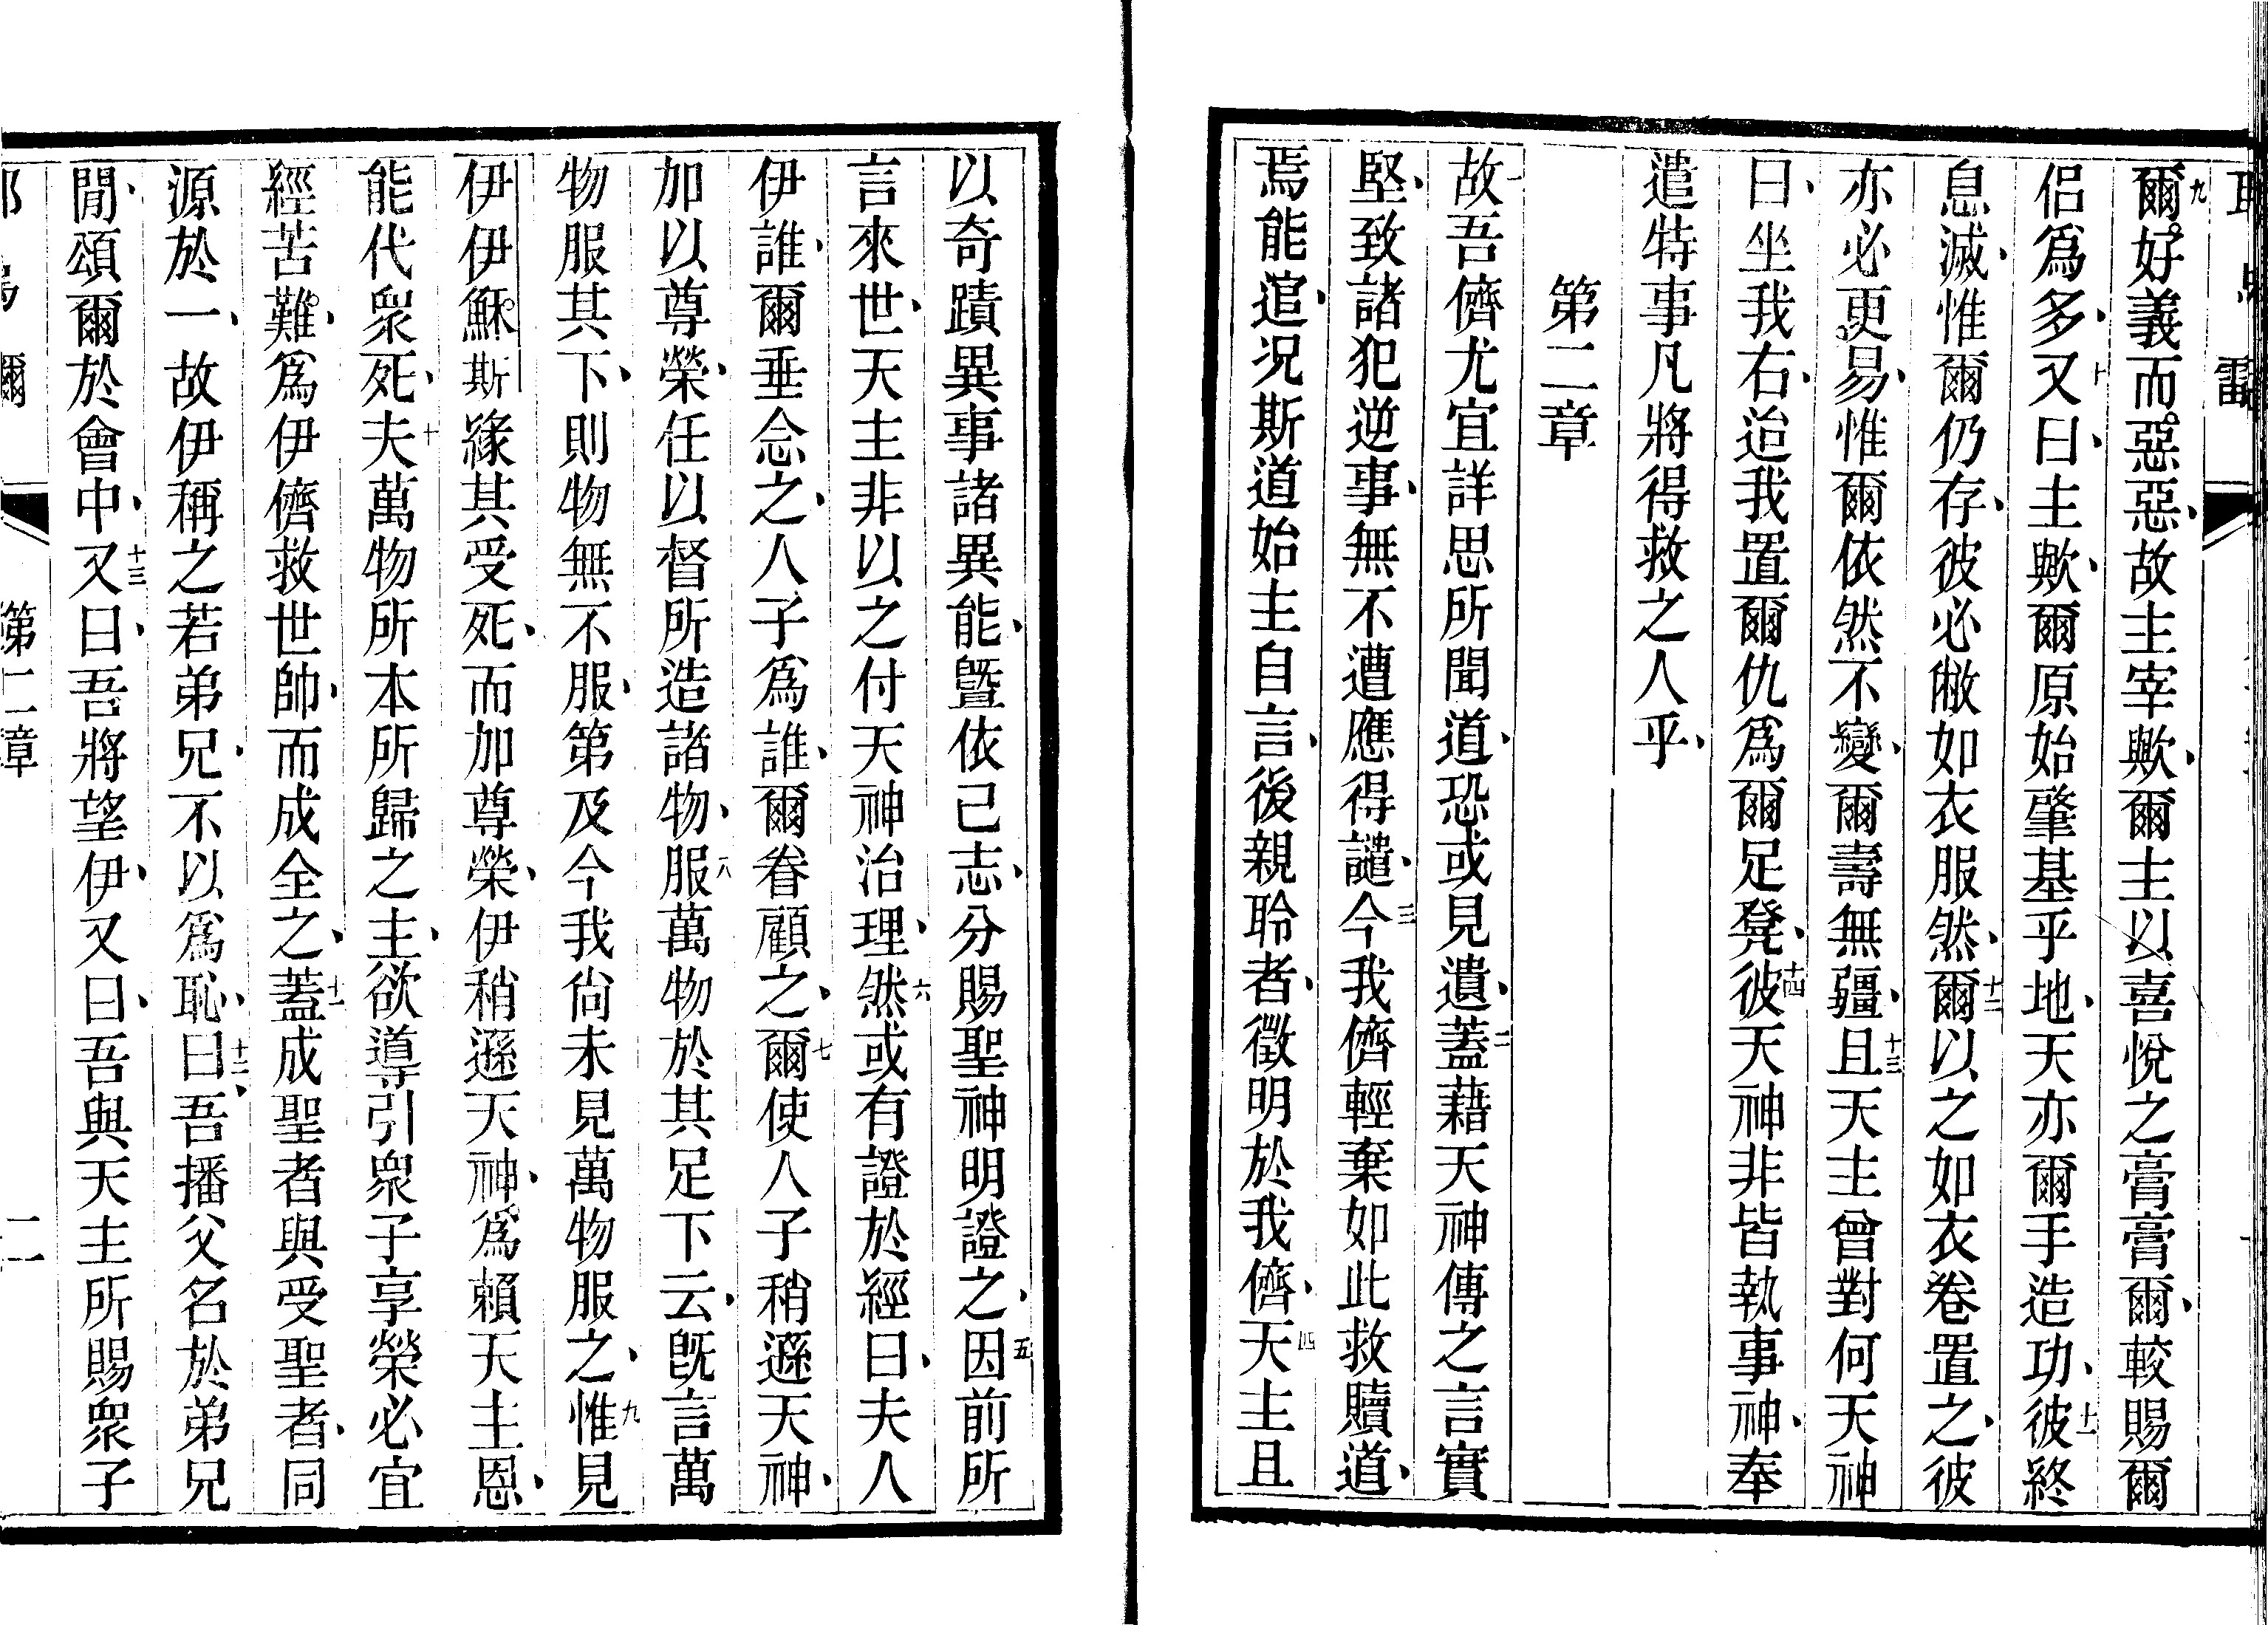 九爾好義而惡惡、故主宰歟、爾主以喜悅之膏膏爾、較賜爾
侶爲多、十又曰、主歟、爾原始肇基乎地、天亦爾手造功、十一彼終
息滅、惟爾仍存、彼必敝如衣服然、十二爾以之如衣卷置之、彼
亦必更易、惟爾依然不變、爾壽無疆、十三且天主曾對何天神
曰、坐我右、迨我置爾仇爲爾足凳、十四彼天神非皆執事神、奉
遣特事凡將得救之人乎、
第二章
一故吾儕尤宜詳思所聞道、恐或見遺、二蓋藉天神傳之言實
堅、致諸犯逆事、無不遭應得譴、三今我儕輕棄如此救贖道、
焉能逭、況斯道始主自言、後親聆者、徵明於我儕、四天主且
以奇蹟異事諸異能、曁依己志、分賜聖神明證之、五因前所
言來世、天主非以之付天神治理、六然或有證於經曰、夫人
伊誰、爾垂念之、人子爲誰、爾眷顧之、七爾使人子稍遜天神、
加以尊榮、任以督所造諸物、八服萬物於其足下云、旣言萬
物服其下、則物無不服、第及今我尙未見萬物服之、九惟見
伊伊穌斯緣其受死、而加尊榮、伊稍遜天神、爲賴天主恩、
能代衆死、十夫萬物所本所歸之主、欲導引衆子享榮必宜
經苦難、爲伊儕救世帥、而成全之、十一蓋成聖者與受聖者、同
源於一、故伊稱之若弟兄、不以爲恥、十二曰、吾播父名於弟兄
閒、頌爾於會中、十三又曰、吾將望伊、又曰、吾與天主所賜衆子
第二章
二